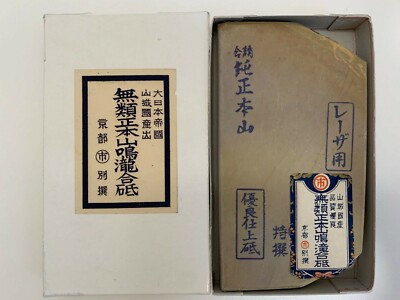 大日本帝國
山城國産出
無類正本山鳴瀧合砥
京都 市 別撰
純正本山
レーザ用
優良仕上砥
特撰
市
山城國産
無類正本山鳴瀧合砥
京都 市 別撰